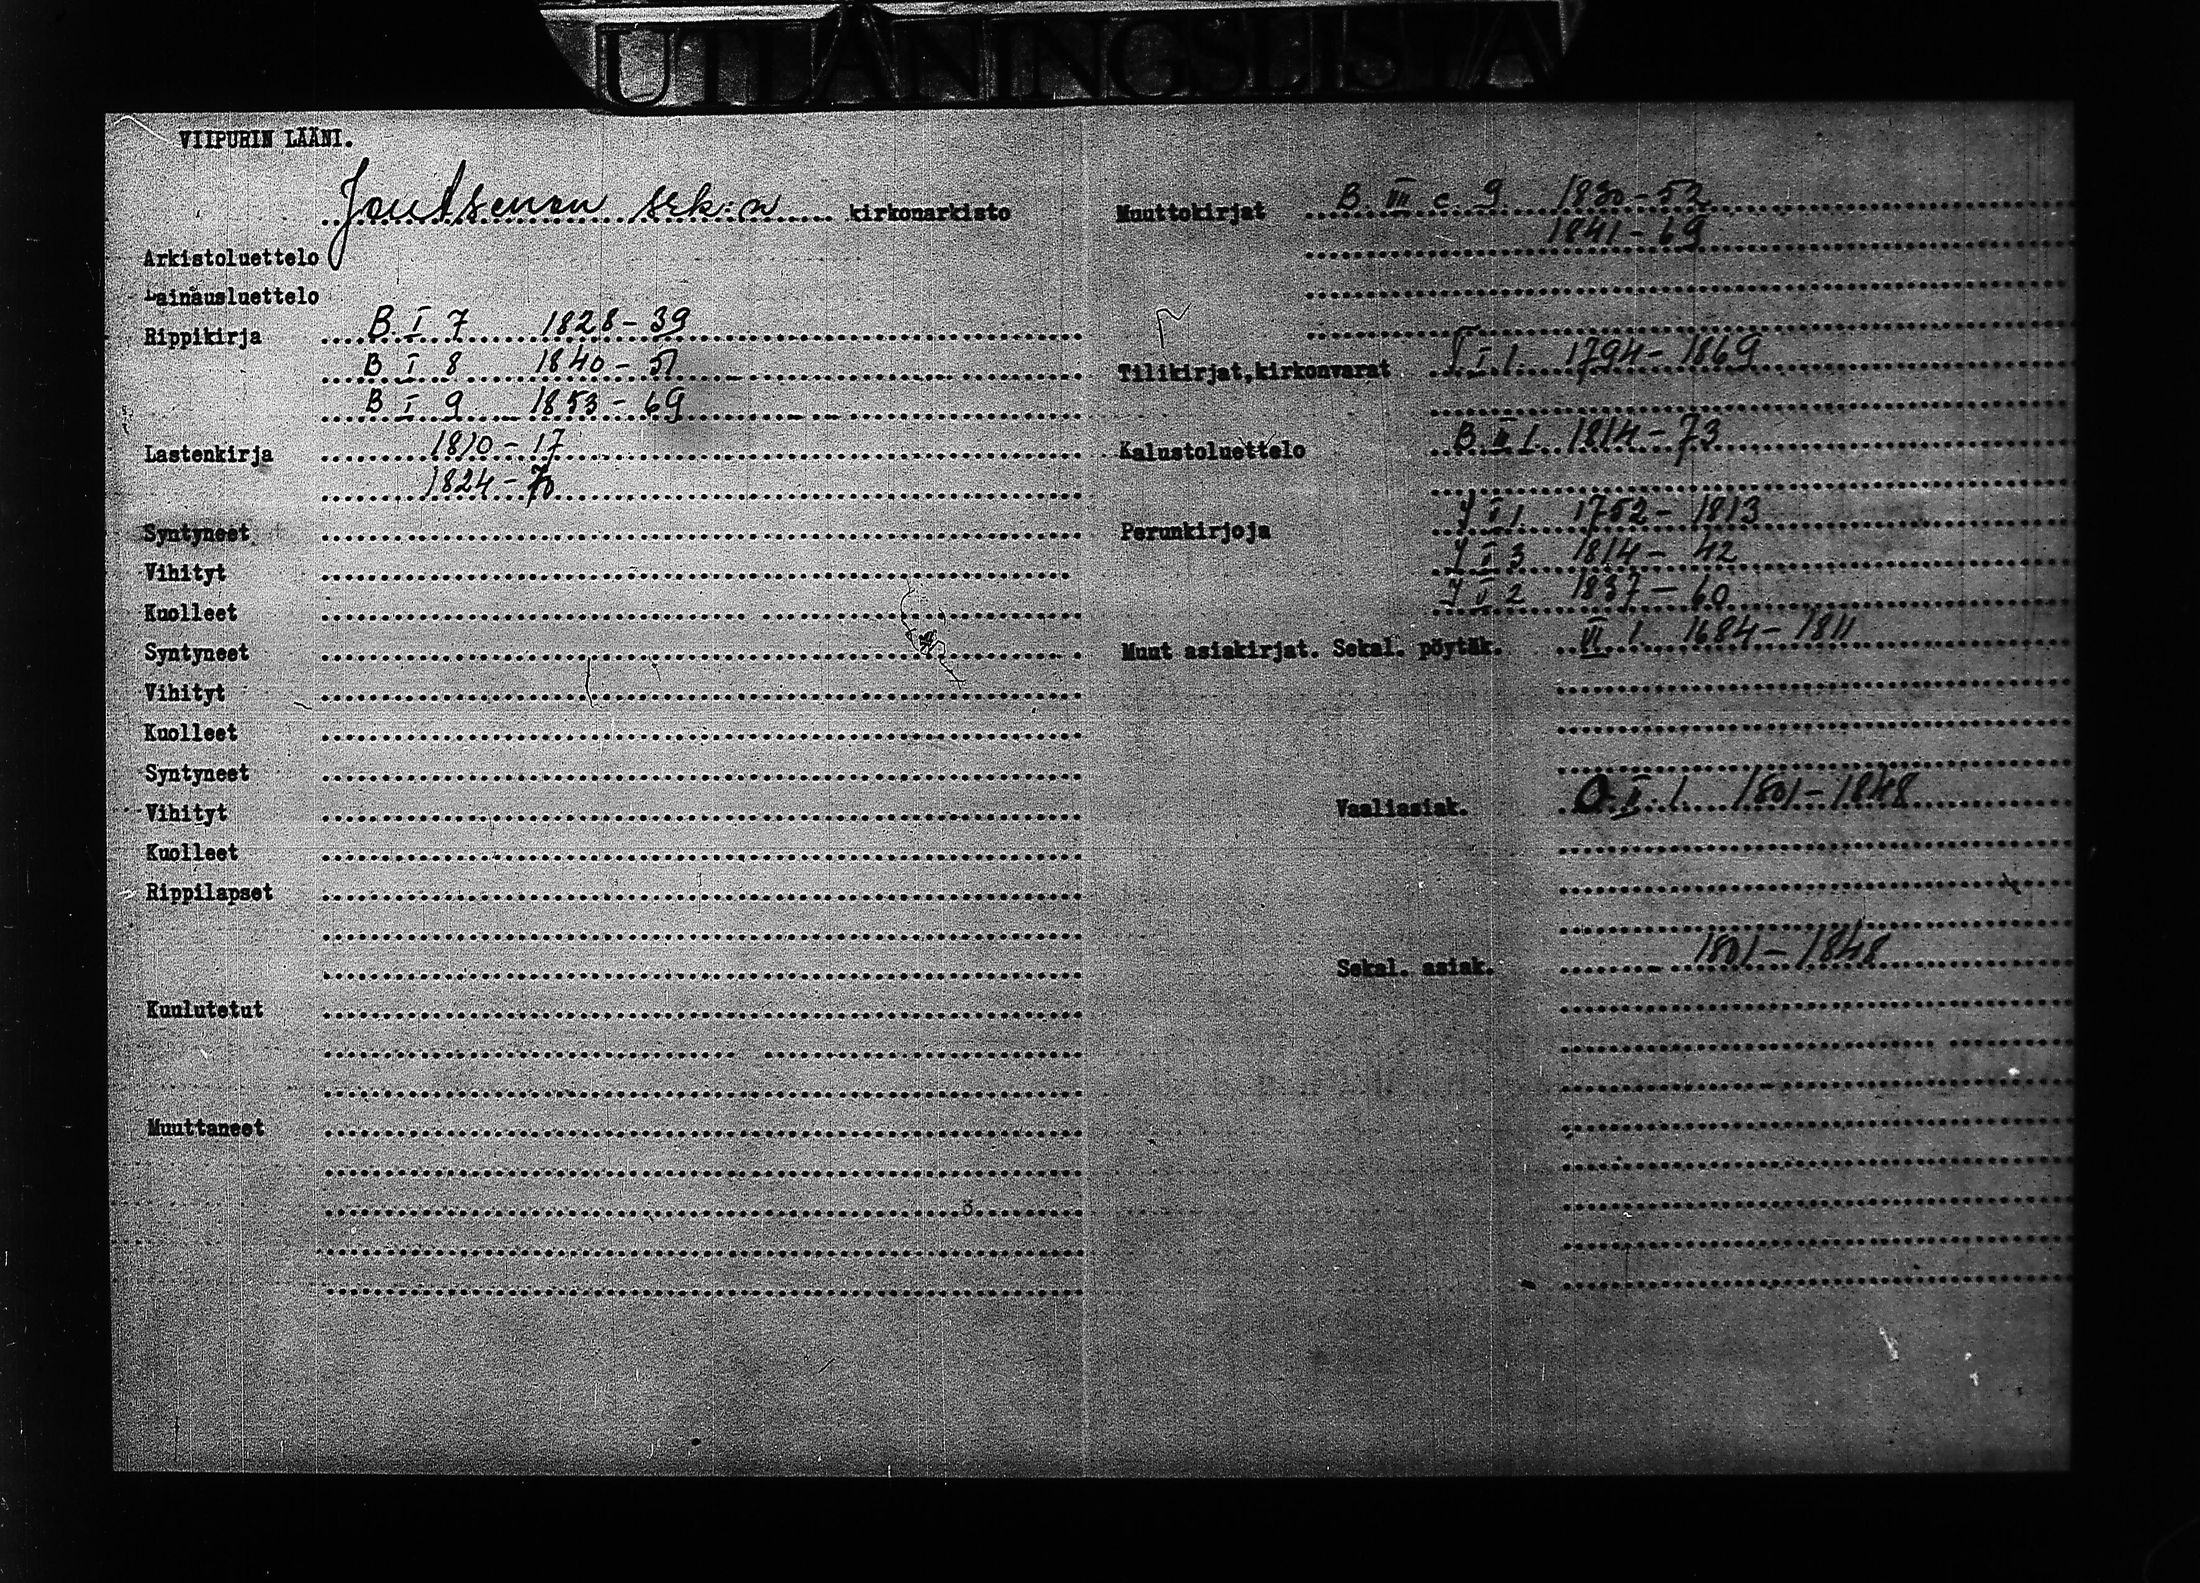 UTLÅNINGSLISTA
VIIPURIN LÄÄNI.
Joutsenon srk:n kirkonarkisto
Arkistoluettelo
Lainausluettelo
Rippikirja B. I 7 1828-39
B I 8 1840-51
B I 9 1853-69
Lastenkirja 1810-17
1824-70
Syntyneet
Vihityt
Kuolleet
Syntyneet
Vihityt
Kuolleet
Syntyneet
Vihityt
Kuolleet
Rippilapset
Kuulutetut
Muuttaneet
Muuttokirjat B III c 9 1830-52
1841-69
Tilikirjat,kirkonvarat I 1 1794-1869
Kalustoluettelo B II 1 1814-73
Perunkirjoja J I 1 1752-1813
J II 3 1814-42
J II 2 1837-60
Muut asiakirjat. Sekal. pöytäk. VI 1 1684-1811
Vaaliasiak. O II 1 1801-1848
Sekal. asiak. 1801-1848